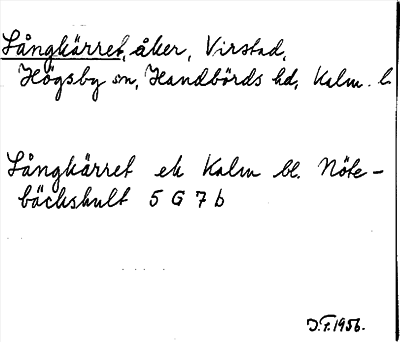 Långkärret, åker, Virstad,
Högsby sn, Handbörds hd, Kalm. l.
Långkärret ek Kalm bl. Nöte-
bäckshult 5 G 7 b
J.F. 1956.